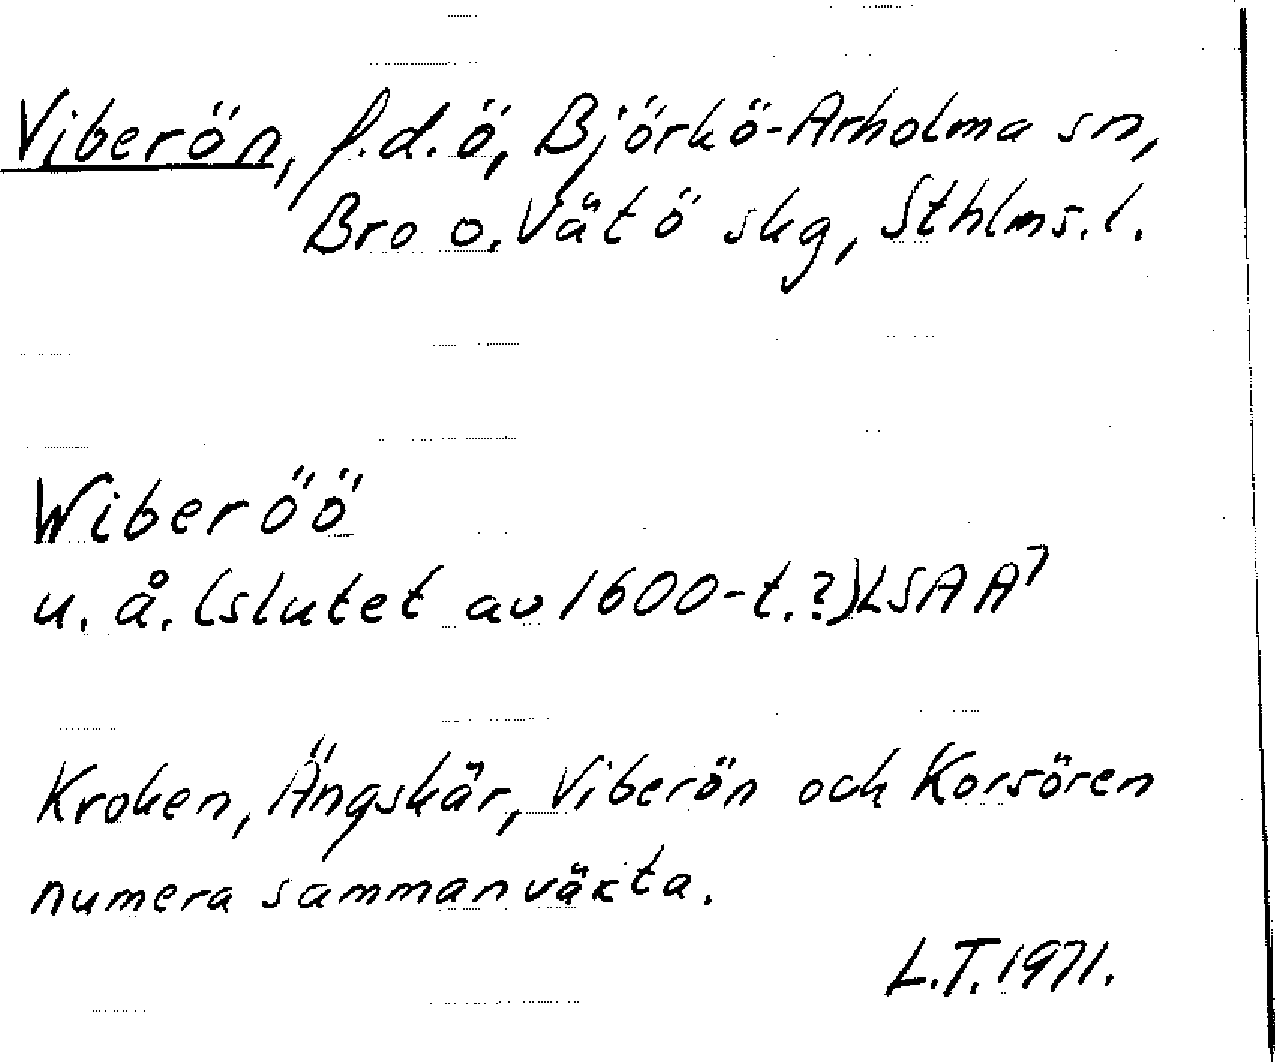 Viberön, f.d. ö, Björkö-Arholma sn,
Bro o. Vätö skg, Sthlms. l.
Wiberöö
u. å. (slutet av 1600-t.?) LSA A7
Kroken, Ängskär, Viberön och Korsören
numera sammanväxta.
L.T. 1971.